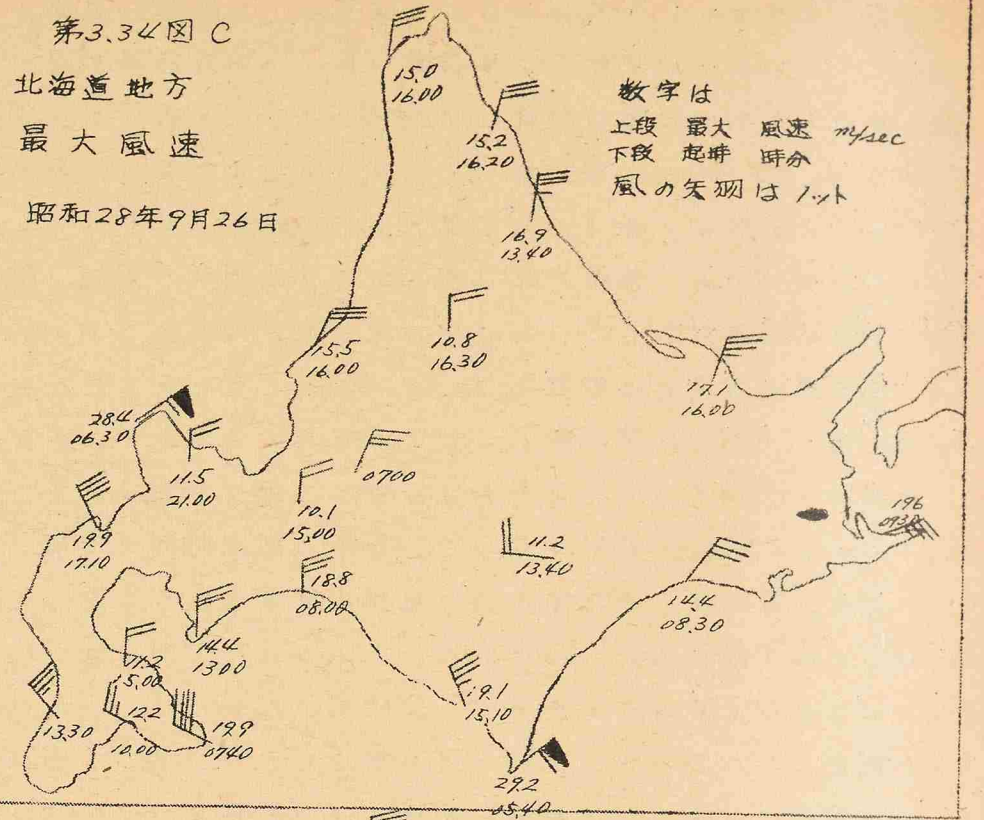 第3.34図 C
北海道地方
最大風速
昭和28年9月26日
数字は
上段 最大 風速 m/sec
下段 起時 時分
風の矢羽はノット
15.0
16.00
15.2
16.20
16.9
13.40
15.5
16.00
10.8
16.30
17.1
16.00
28.4
06.30
11.5
21.00
0700
10.1
15.00
19.9
17.10
18.8
08.00
11.2
13.40
196
14.4
08.30
14.4
13.00
11.2
15.00
13.30
122
10.00
199
0740
19.1
15.10
29.2
05.40